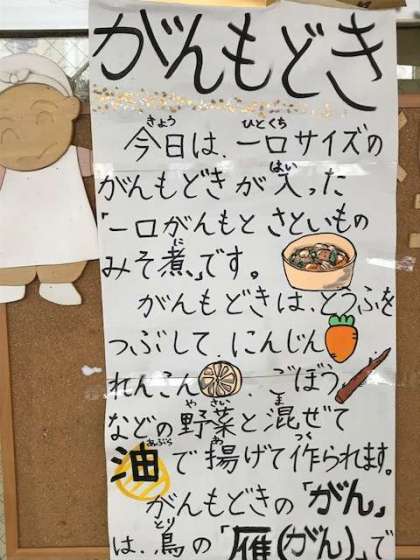 がんもどき
今日は、一口サイズの
がんもどきが入った
「一口がんもとさといもの
みそ煮」です。
がんもどきは、とうふを
つぶして、にんじん
れんこん、ごぼう
などの野菜と混ぜて
油で揚げて作られます。
がんもどきの「がん」
は、鳥の「雁(がん)」で